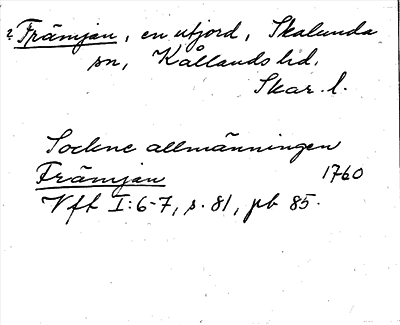 ? Främjan, en utjord, Skalunda
sn, Kållands hd,
Skar. l.
Sockne allmänningen
Främjan 1760
Vft I:6-7, s. 81, pb 85.